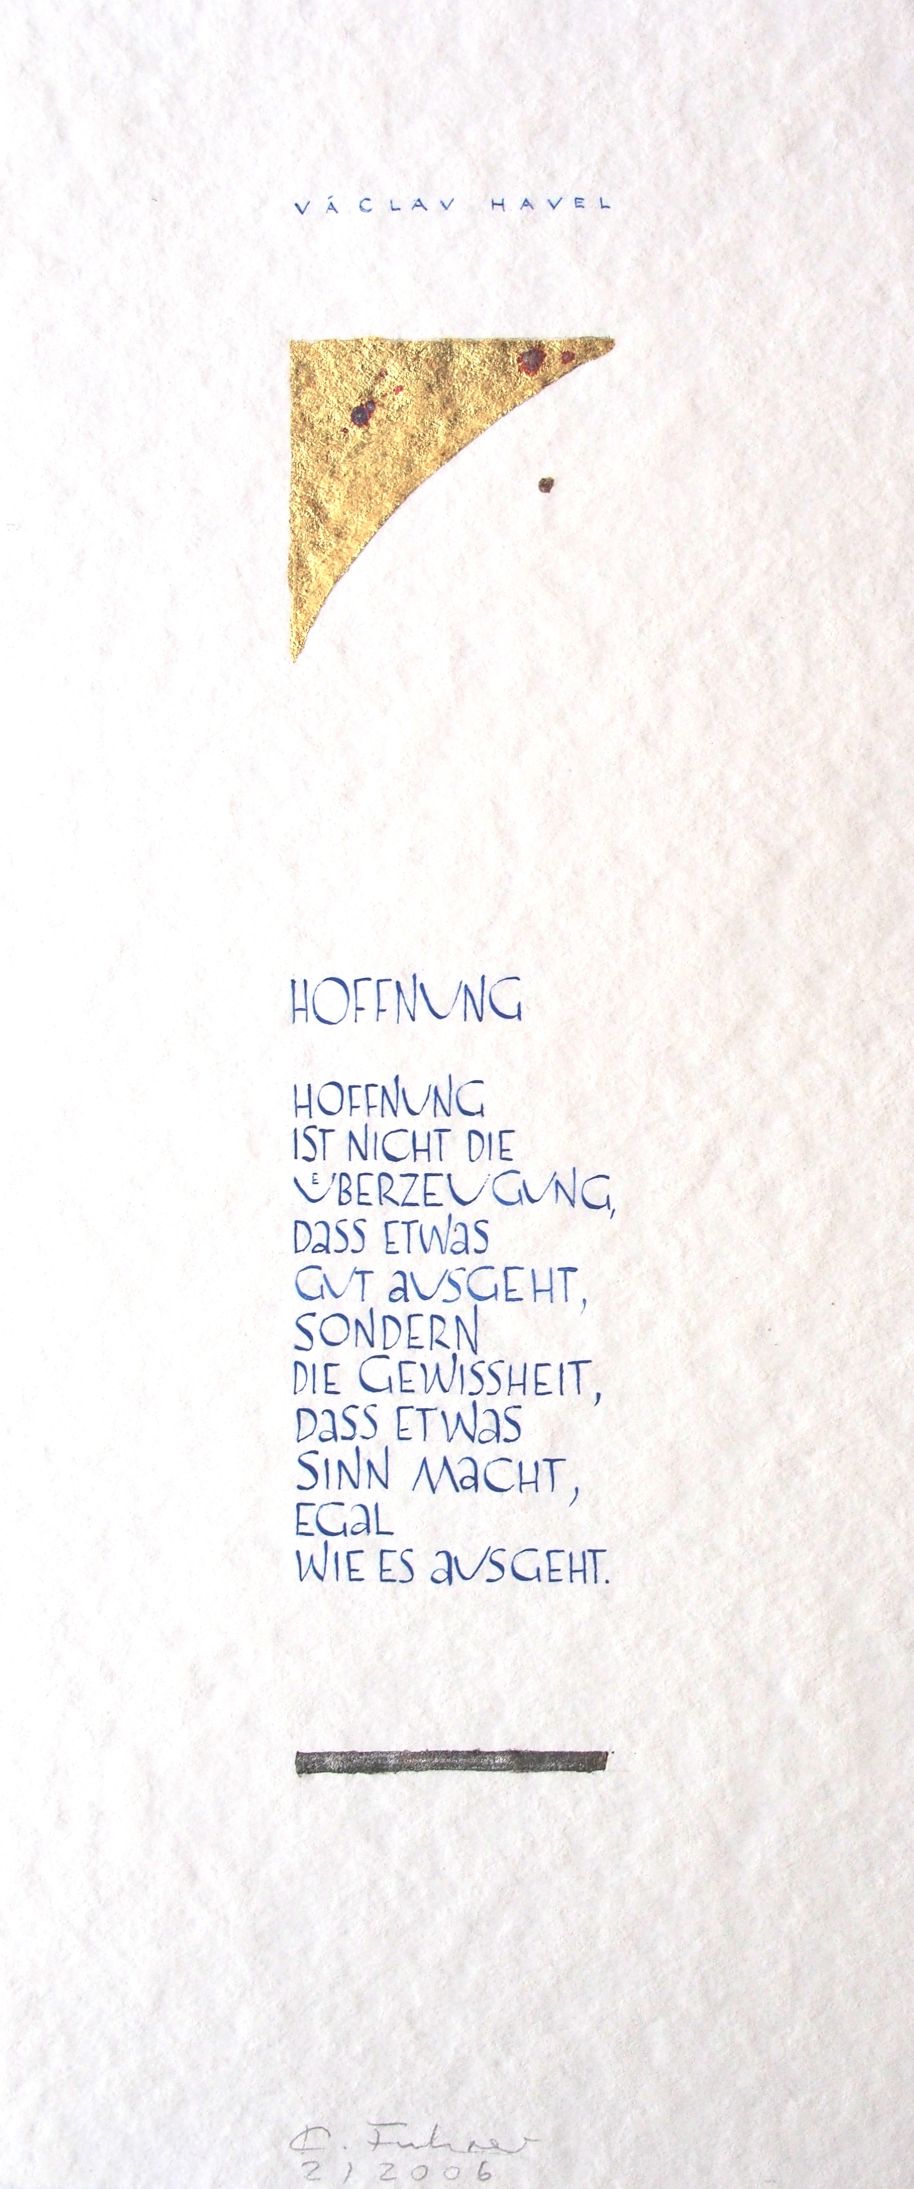 VÁCLAV HAVEL
HOFFNUNG
HOFFNUNG
IST NICHT DIE
ÜBERZEUGUNG,
DaSS ETWaS
GUT aUSGEHT,
SONDERN
DIE GEWISSHEIT,
DaSS ETWaS
SINN MaCHT,
EGaL
WIE ES aUSGEHT.
Fuhrer
2/2006